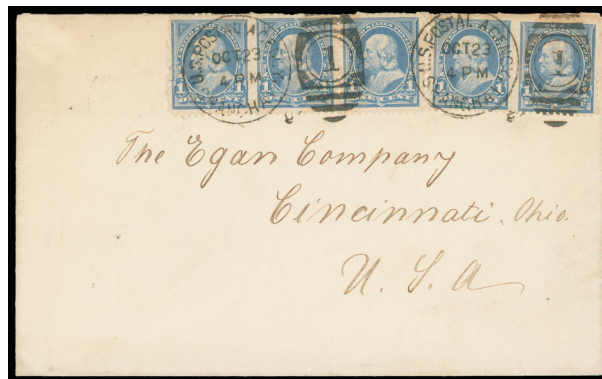 U.S. POSTAL AGENCY
OCT 23
4 PM
1
U.S. POSTAL AGENCY
OCT 23
4 PM
1
1 ONE CENT 1
The Egan Company
Cincinnati, Ohio.
U. S. A